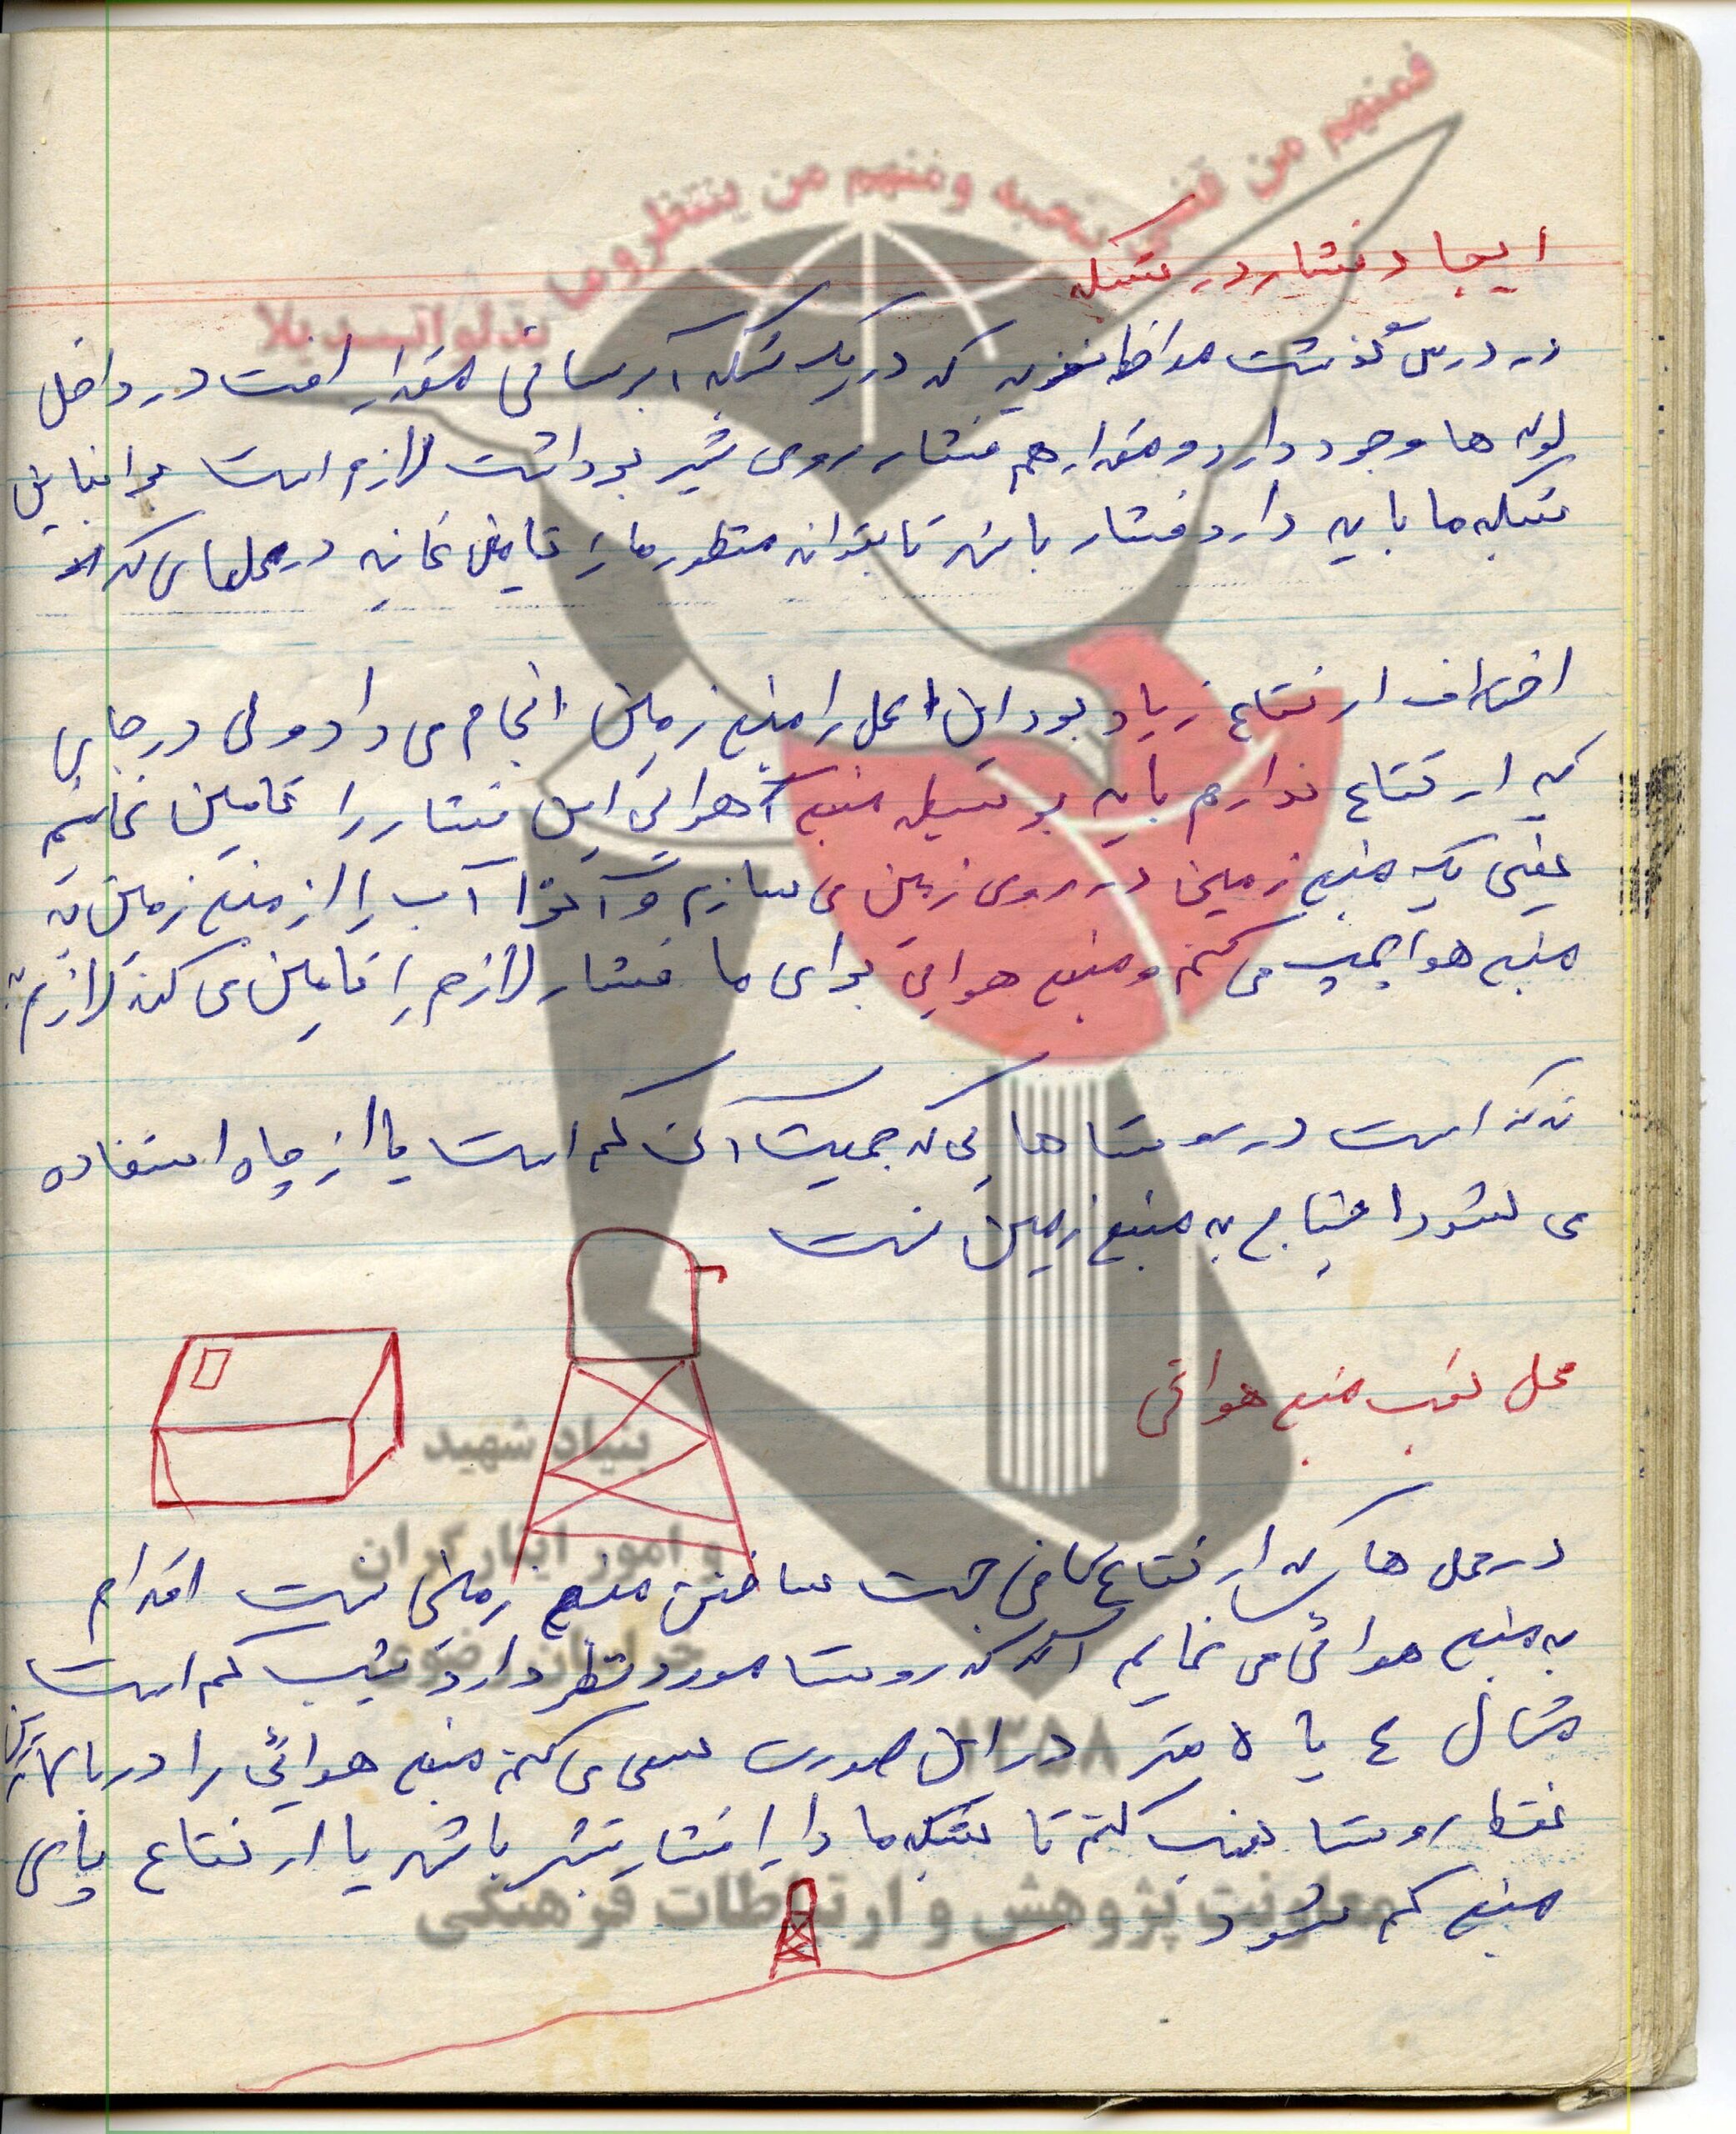 فمنهم من قضی نحبه ومنهم من ینتظر وما بدلوا تبدیلا
ایجاد فشار در شبکه
در درس گذشته ملاحظه نمودید که در یک شبکه آبرسانی مقدار افت در داخل
لوله ها وجود دارد و مقدار هم فشار روی شیر برداشت لازم است بنابراین
شبکه ما باید دارد فشار باشد تا بتواند منظور ما را تامین نماید در محلهای که
اختلاف ارتفاع زیاد بود این عمل را منبع زمین انجام می داد ولی در جای
که ارتفاع نداریم باید بوسیله منبع هوائی این فشار را تامین نمائیم
یعنی یک منبع زمینی در روی زمین می سازیم و آب را از منبع زمین به
منبع هوا پمپ می کنیم و منبع هوایی برای ما فشار لازم را تامین می کند لازم به
تذکر است در روستا هایی که جمعیت آن کم است یا از چاه استفاده
می شود احتیاج به منبع زمین نیست
محل نصب منبع هوائی
در محل ها که ارتفاع کافی جهت ساختن منبع زمینی نیست اقدام
به منبع هوائی می نمایم اگر که روستا مورد نظر دارد شیب کم است
مثال ٤ یا ٥ متر در این صورت سعی می کنم منبع هوائی را در بالاترین
نقطه روستا نصب کنم تا شبکه ما دارا فشار بیشتر باشد یا ارتفاع پای
منبع کم شود
بنیاد شهید
و امور ایثارگران
خراسان رضوی
۱۳۵۸
معاونت پژوهش و ارتباطات فرهنگی